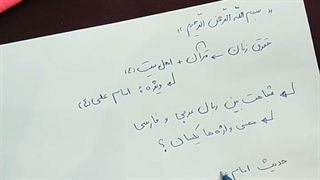 « بسم الله الرحمن الرحیم »
حقوق زنان ← قرآن + اهل بیت (ع)
↳ ویژه: امام علی (ع)
↳ شباهت بین زبان عربی و فارسی
↳ معنی واژه ها یکسان؟
حدیث امام